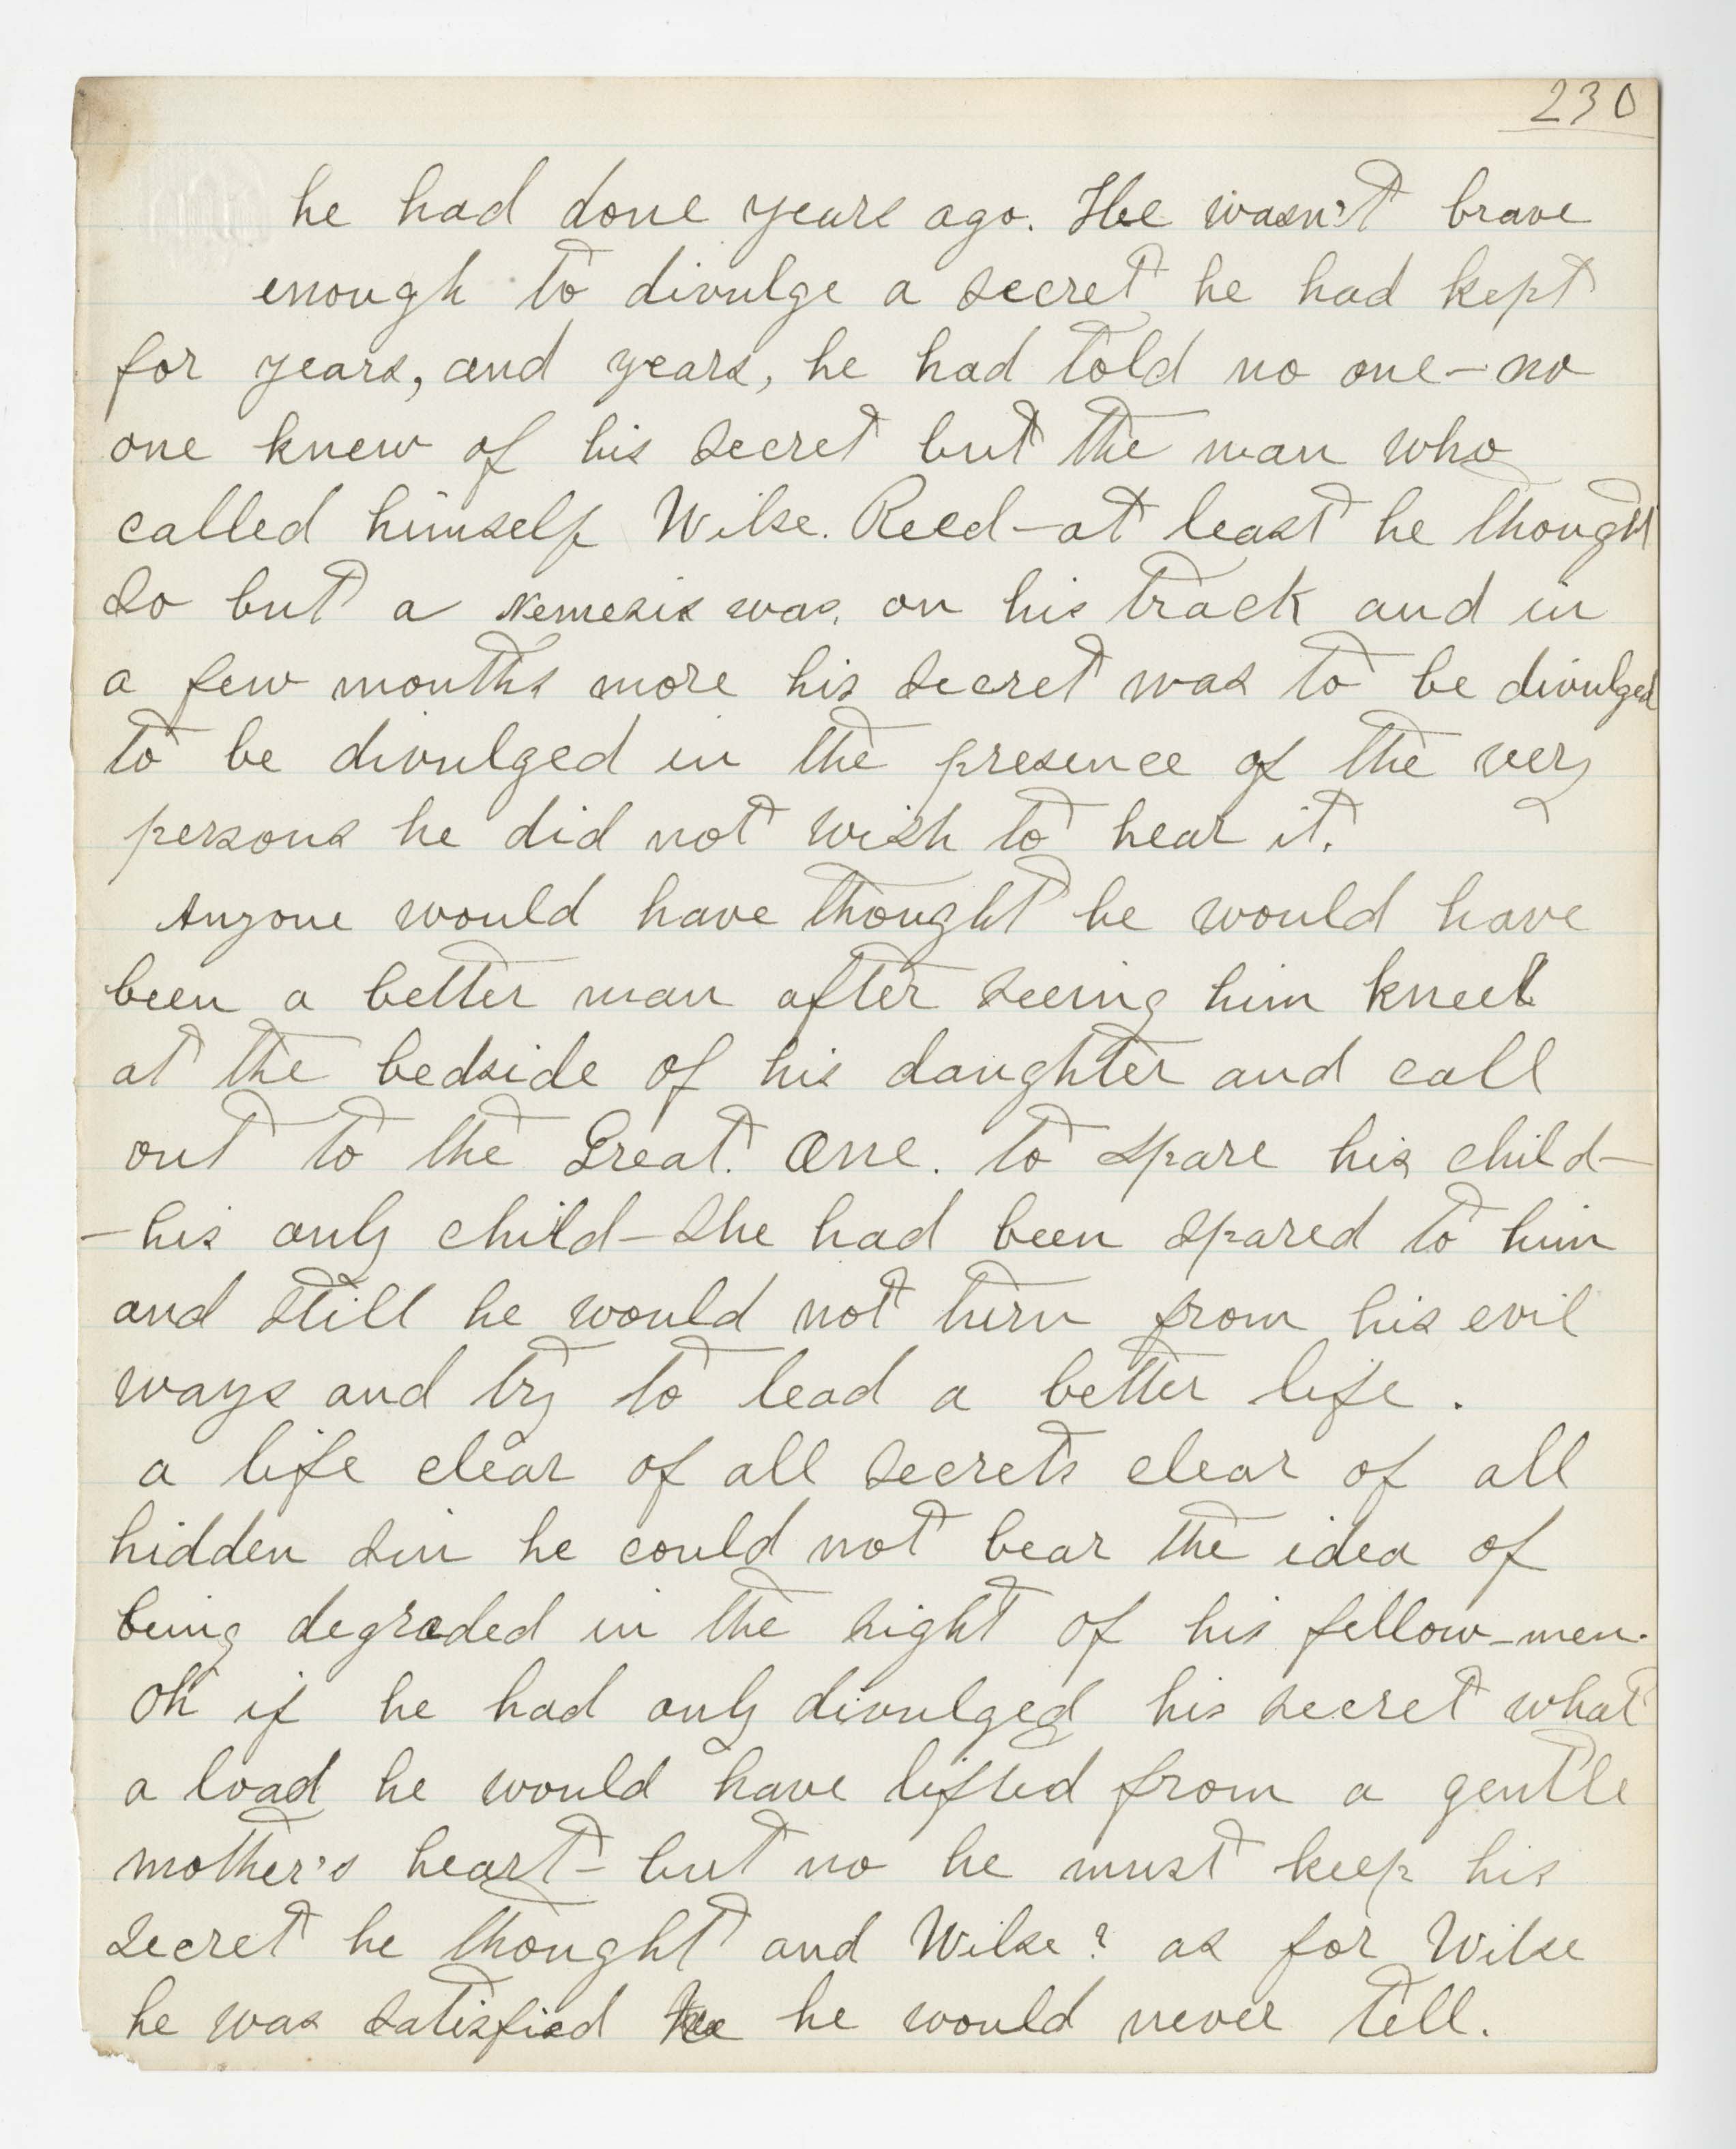 230
he had done years ago. He wasn't brave
enough to divulge a secret he had kept
for years, and years, he had told no one—no
one knew of his secret but the man who
called himself Wilse. Reed—at least he thought
so but a Nemesis was. on his track and in
a few months more his secret was to be divulged
to be divulged in the presence of the very
persons he did not wish to hear it.
Anyone would have thought he would have
been a better man after seeing him kneel
at the bedside of his daughter and call
out to the Great. One. to spare his child—
—his only child—She had been spared to him
and still he would not turn from his evil
ways and try to lead a better life.
a life clear of all secrets clear of all
hidden sin he could not bear the idea of
being degraded in the sight of his fellow-men.
Oh if he had only divulged his secret what
a load he would have lifted from a gentle
mother's heart—but no he must keep his
secret he thought and Wilse? as for Wilse
he was satisfied he would never tell.